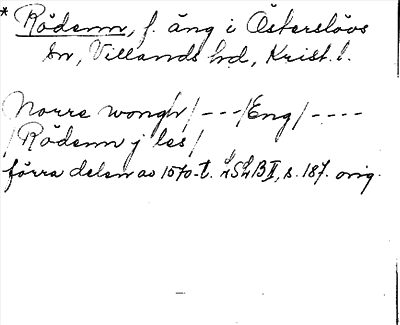 * Rödenn, f. äng i Österslövs
sn, Villands hd, Krist. l.
Norre wongh / - - - /Eng/ - - - -
/Rödenn j les/
förra delen av 1570-t. LSLB II, s. 187. orig.